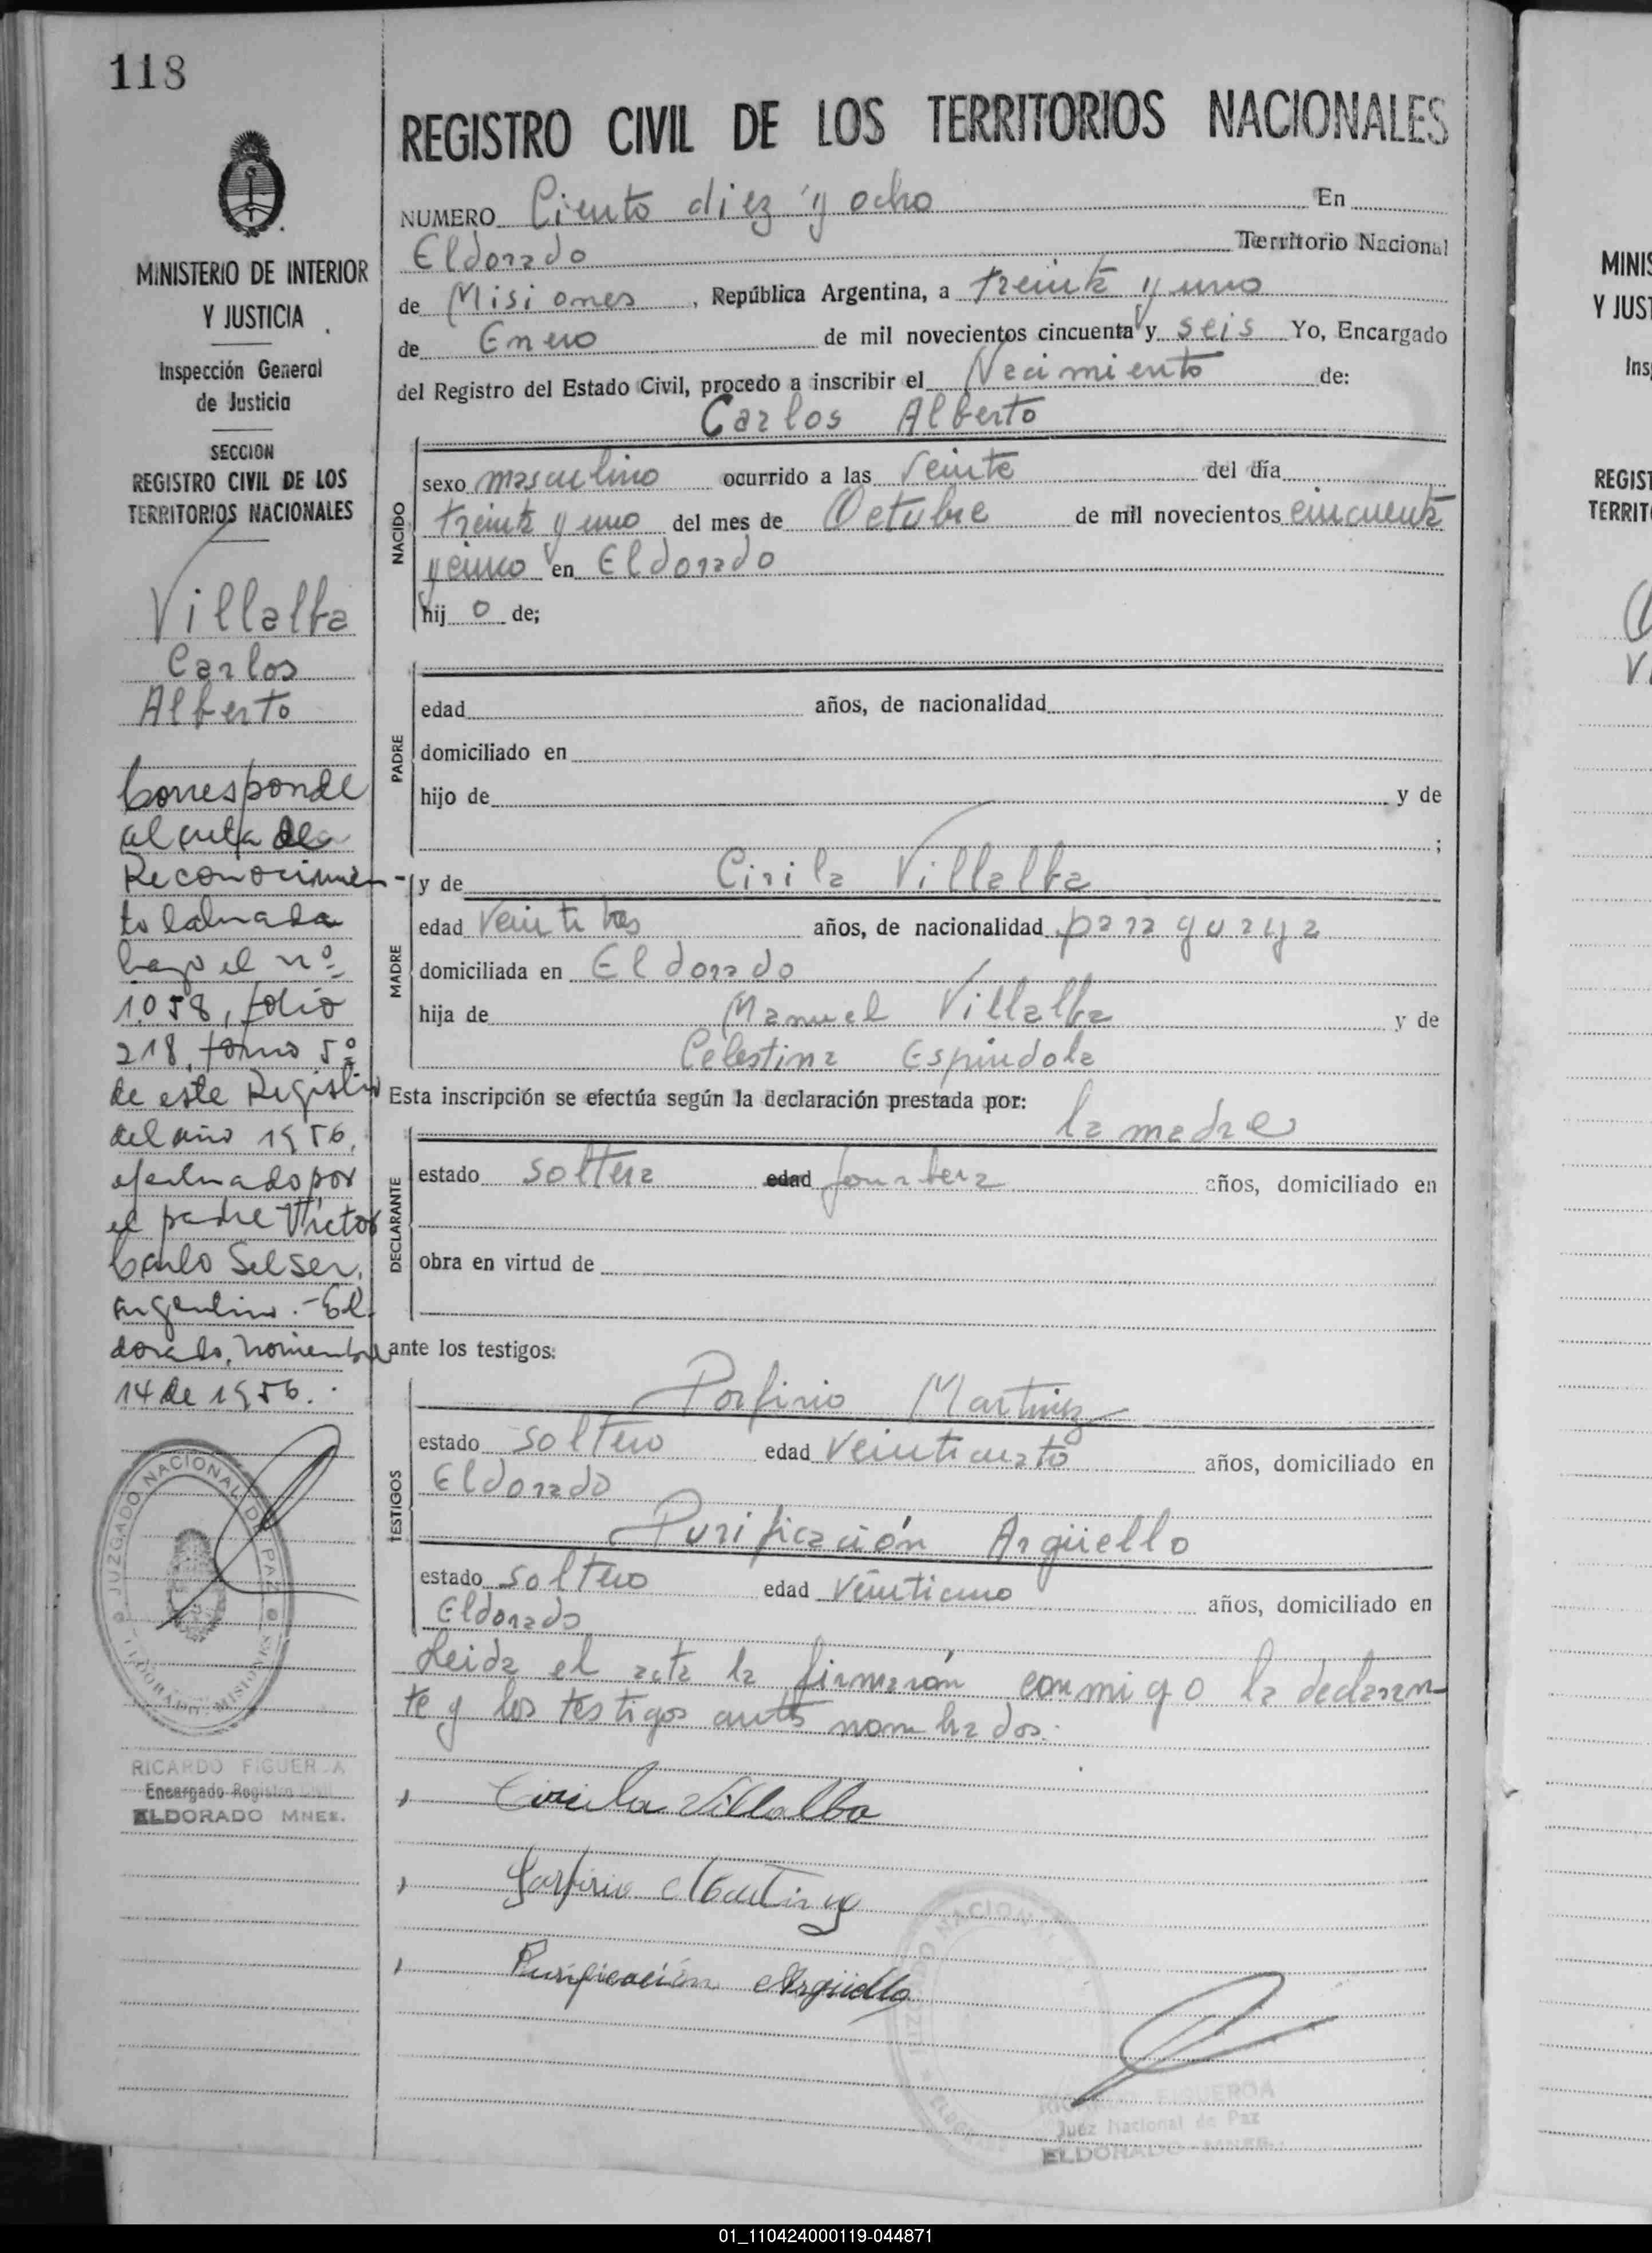 118
MINISTERIO DE INTERIOR
Y JUSTICIA
Inspección General
de Justicia
SECCION
REGISTRO CIVIL DE LOS
TERRITORIOS NACIONALES
Villalba
Carlos
Alberto
Corresponde
al acta de
Reconocimien-
to labrada
bajo el nº
1.058, folio
218, tomo 5º
de este Registro
del año 1956,
efectuado por
el padre Victor
Carlo Selser,
argentino.- El
dorado, noviembre
14 de 1956.
JUZGADO NACIONAL DE PAZ
ELDORADO MISIONES
RICARDO FIGUEROA
Encargado Registro Civil
ELDORADO MNES.
REGISTRO CIVIL DE LOS TERRITORIOS NACIONALES
NUMERO Ciento diez y ocho En
Eldorado Territorio Nacional
de Misiones, República Argentina, a treinta y uno
de Enero de mil novecientos cincuenta y seis Yo, Encargado
del Registro del Estado Civil, procedo a inscribir el Nacimiento de:
Carlos Alberto
NACIDO
sexo masculino ocurrido a las veinte del día
treinta y uno del mes de Octubre de mil novecientos cincuenta
y cinco en Eldorado
hij o de;
PADRE
edad años, de nacionalidad
domiciliado en
hijo de y de
;
y de Cirila Villalba
MADRE
edad veintitres años, de nacionalidad paraguaya
domiciliada en Eldorado
hija de Manuel Villalba y de
Celestina Espindola
Esta inscripción se efectúa según la declaración prestada por:
la madre
DECLARANTE
estado soltera edad años, domiciliado en
obra en virtud de
ante los testigos:
TESTIGOS
Porfirio Martinez
estado soltero edad veinticuato años, domiciliado en
Eldorado
Purificación Argüello
estado soltero edad años, domiciliado en
Eldorado
Leida el acta la firmarón conmigo la declaran-
te y los testigos antes nombrados.
Cirila Villalba
Porfirio Martinez
Purificación Argüello
RICARDO FIGUEROA
Juez Nacional de Paz
ELDORADO - MNES.
MINIS
Y JUST
Ins
REGIST
TERRIT
01_110424000119-044871